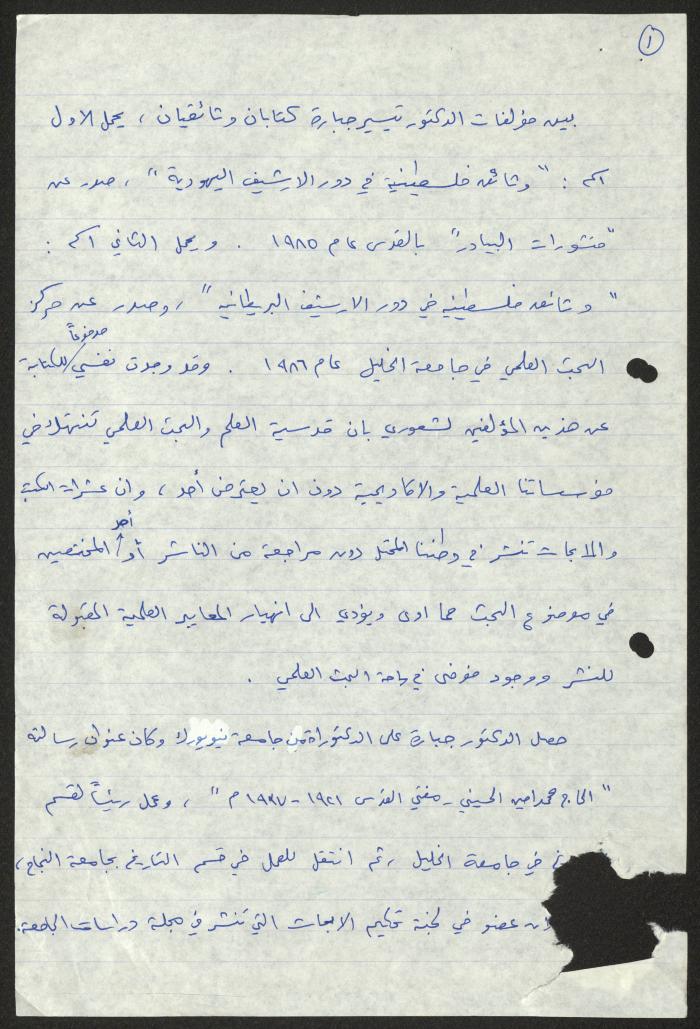 ١
بين مؤلفات الدكتور تيسير جبارة كتابان وثائقيان ، يحمل الاول
اسم : " وثائق فلسطينية في دور الارشيف اليهودية " ، صدر عن
"منشورات البيادر" بالقدس عام ١٩٨٥ . ويحمل الثاني اسم :
" وثائق فلسطينيه في دور الارشيف البريطانيه " ، وصدر عن مركز
البحث العلمي في جامعة الخليل عام ١٩٨٦ . وقد وجدت نفسي مدفوعاً للكتابة
عن هذين المؤلفين لشعوري بان قدسية العلم والبحث العلمي تنتهك في
مؤسساتنا العلمية والاكاديمية دون ان يعترض أحد ، وان عشرات الكتب
والابحاث تنشر في وطننا المحتل دون مراجعة من الناشر أو أحد المختصين
في موضوع البحث مما ادى ويؤدي الى انهيار المعايير العلمية المقبولة
للنشر ووجود فوضى في ساحة البحث العلمي .
حصل الدكتور جبارة على الدكتوراة من جامعة نيويورك وكان عنوان رسالته
" الحاج محمد امين الحسيني - مفتي القدس ١٩٢١ - ١٩٣٧ م " ، وعمل رئيساً لقسم
في جامعة الخليل ، ثم انتقل للعمل في قسم التاريخ بجامعة النجاح ،
عضو في لجنة تحكيم الابحاث التي تنشر في مجلة دراسات الجامعة .